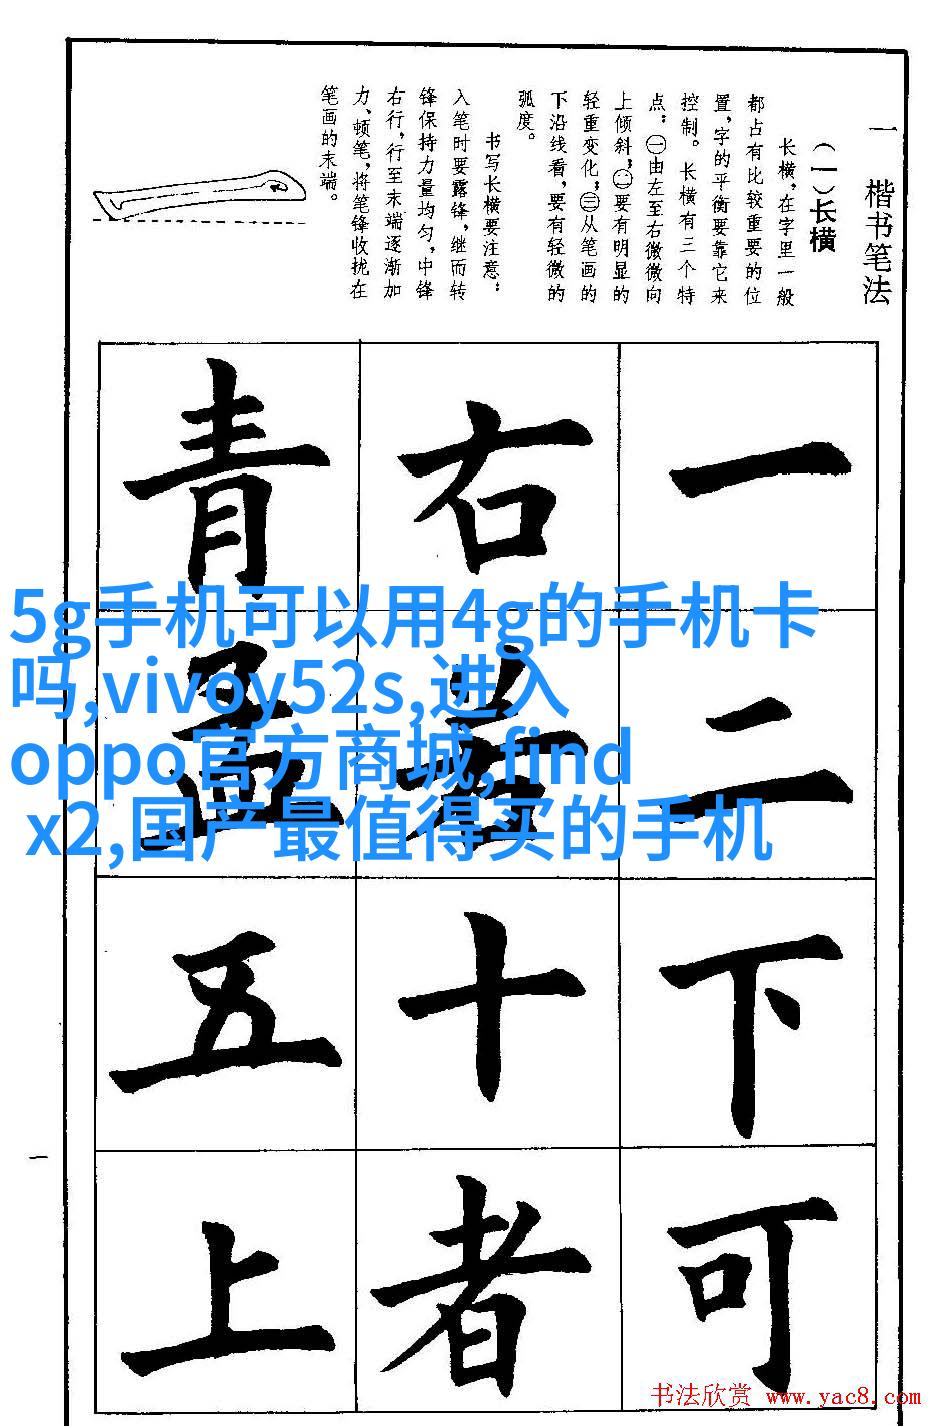 一 楷书笔法
(一)长横
长横,在字里一般
都占有比较重要的位
置,字的平衡要靠它来
控制。长横有三个特
点:㊀由左至右微微向
上倾斜;㊁要有明显的
轻重变化;㊂从笔画的
下沿线看,要有轻微的
弧度。
书写长横要注意:
入笔时要露锋,继而转
锋保持力量均匀,中锋
右行,行至末端逐渐加
力、顿笔,将笔锋收拢在
笔画的末端。
一
二
下
可
右
若
十
者
青
孟
五
上
5g手机可以用4g的手机卡
吗,vivoy52s,进入
oppo官方商城,find
x2,国产最值得买的手机
一
书法欣赏 www.yac8.com